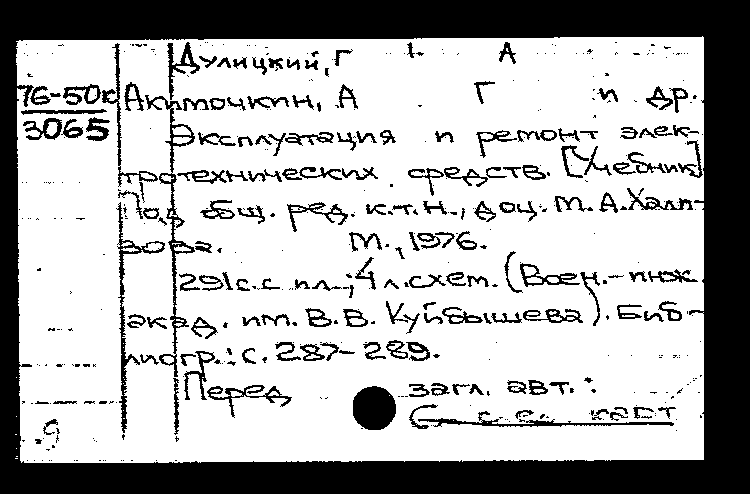 Дулицкий, Г А
76-50к Акимочкин, А Г и др.
3065 Эксплуатация и ремонт элек-
тротехнических средств. [Учебник]
Под общ. ред. к.т.н., доц. М.А.Халп-
зова. М., 1976.
291с.с ил.; 4 л.схем. (Воен.-инж.
акад. им. В.В. Куйбышева). Биб-
лиогр.: с. 287-289.
Перед загл. авт.: